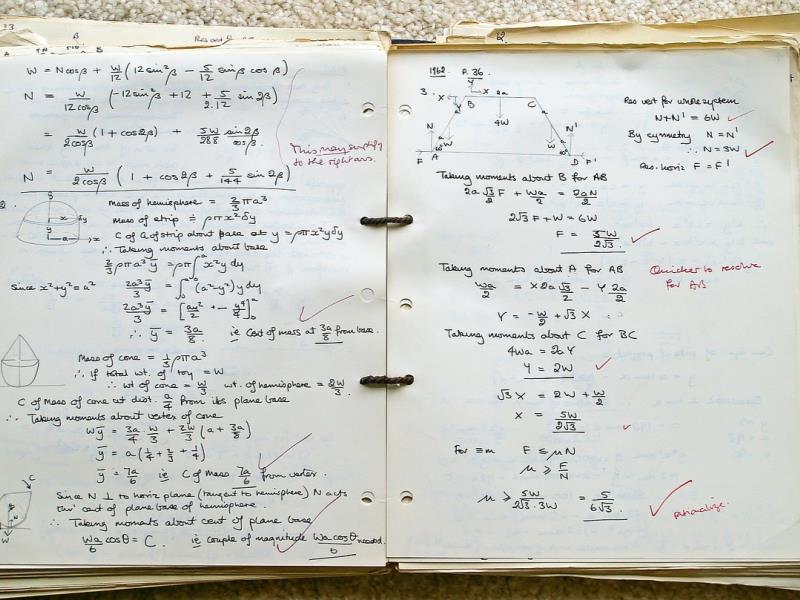 33
W = Ncosβ + W/12 (12sin²β − 5/12 sinβ cosβ)
N = W/12cosβ (−12sin²β + 12 + 5/2.12 sin2β)
= W/2cosβ (1 + cos2β) + 5W/288 sin2β/cosβ.
This may simplify
to the right ans.
N = W/2cosβ (1 + cos2β + 5/144 sin2β)
Mass of hemisphere = 2/3 πa³
Mass of strip ≑ ρπx²δy
C of G of strip about base at y = ρπx²yδy
∴ Taking moments about base
2/3 ρπa³ȳ = ρπ∫₀ᵃ x²y dy
Since x²+y²=a² 2a³ȳ/3 = ∫₀ᵃ (a²−y²) y dy
2a³ȳ/3 = [ay²/2 − y⁴/4]₀ᵃ
∴ ȳ = 3a/8 ie Cent of mass at 3a/8 from base.
Mass of cone = 1/3 ρπa³
∴ If total wt. of toy = W
∴ wt of cone = W/3 wt. of hemisphere = 2W/3
C of Mass of cone at dist. a/4 from its plane base
∴ Taking moments about vertex of cone
Wȳ = 3a/4 . W/3 + 2W/3 (a + 3a/8)
ȳ = a(1/4 + 2/3 + 1/4)
ȳ = 7a/6 ie C of Mass 7a/6 from vertex.
Since N ⊥ to horiz plane (tangent to hemisphere) N acts
thro' cent of plane base of hemisphere.
∴ Taking moments about cent of plane base
Wa/6 cosθ = C. ie couple of magnitude Wa cosθ/6 needed.
12.
1962 P. 36
3.
Y
X
B
2a
C
4W
N
N'
F
A
D
F'
Res vert for whole system
N+N' = 6W
By symmetry N = N'
∴ N = 3W
Res. horiz F = F'
Taking moments about B for AB
2a√3/2 F + Wa/2 = 2aN/2
2√3F + W = 6W
F = 5W/2√3.
Taking moments about A for AB
Quicker to resolve
for AB
Wa/2 = X2a√3/2 − Y2a/2
Y = −W/2 + √3 X
Taking moments about C for BC
4Wa = 2aY
Y = 2W
√3X = 2W + W/2
X = 5W/2√3
For ≡m F ≤ μN
μ ≥ F/N
μ ≥ 5W/2√3.3W = 5/6√3.
rationalize.